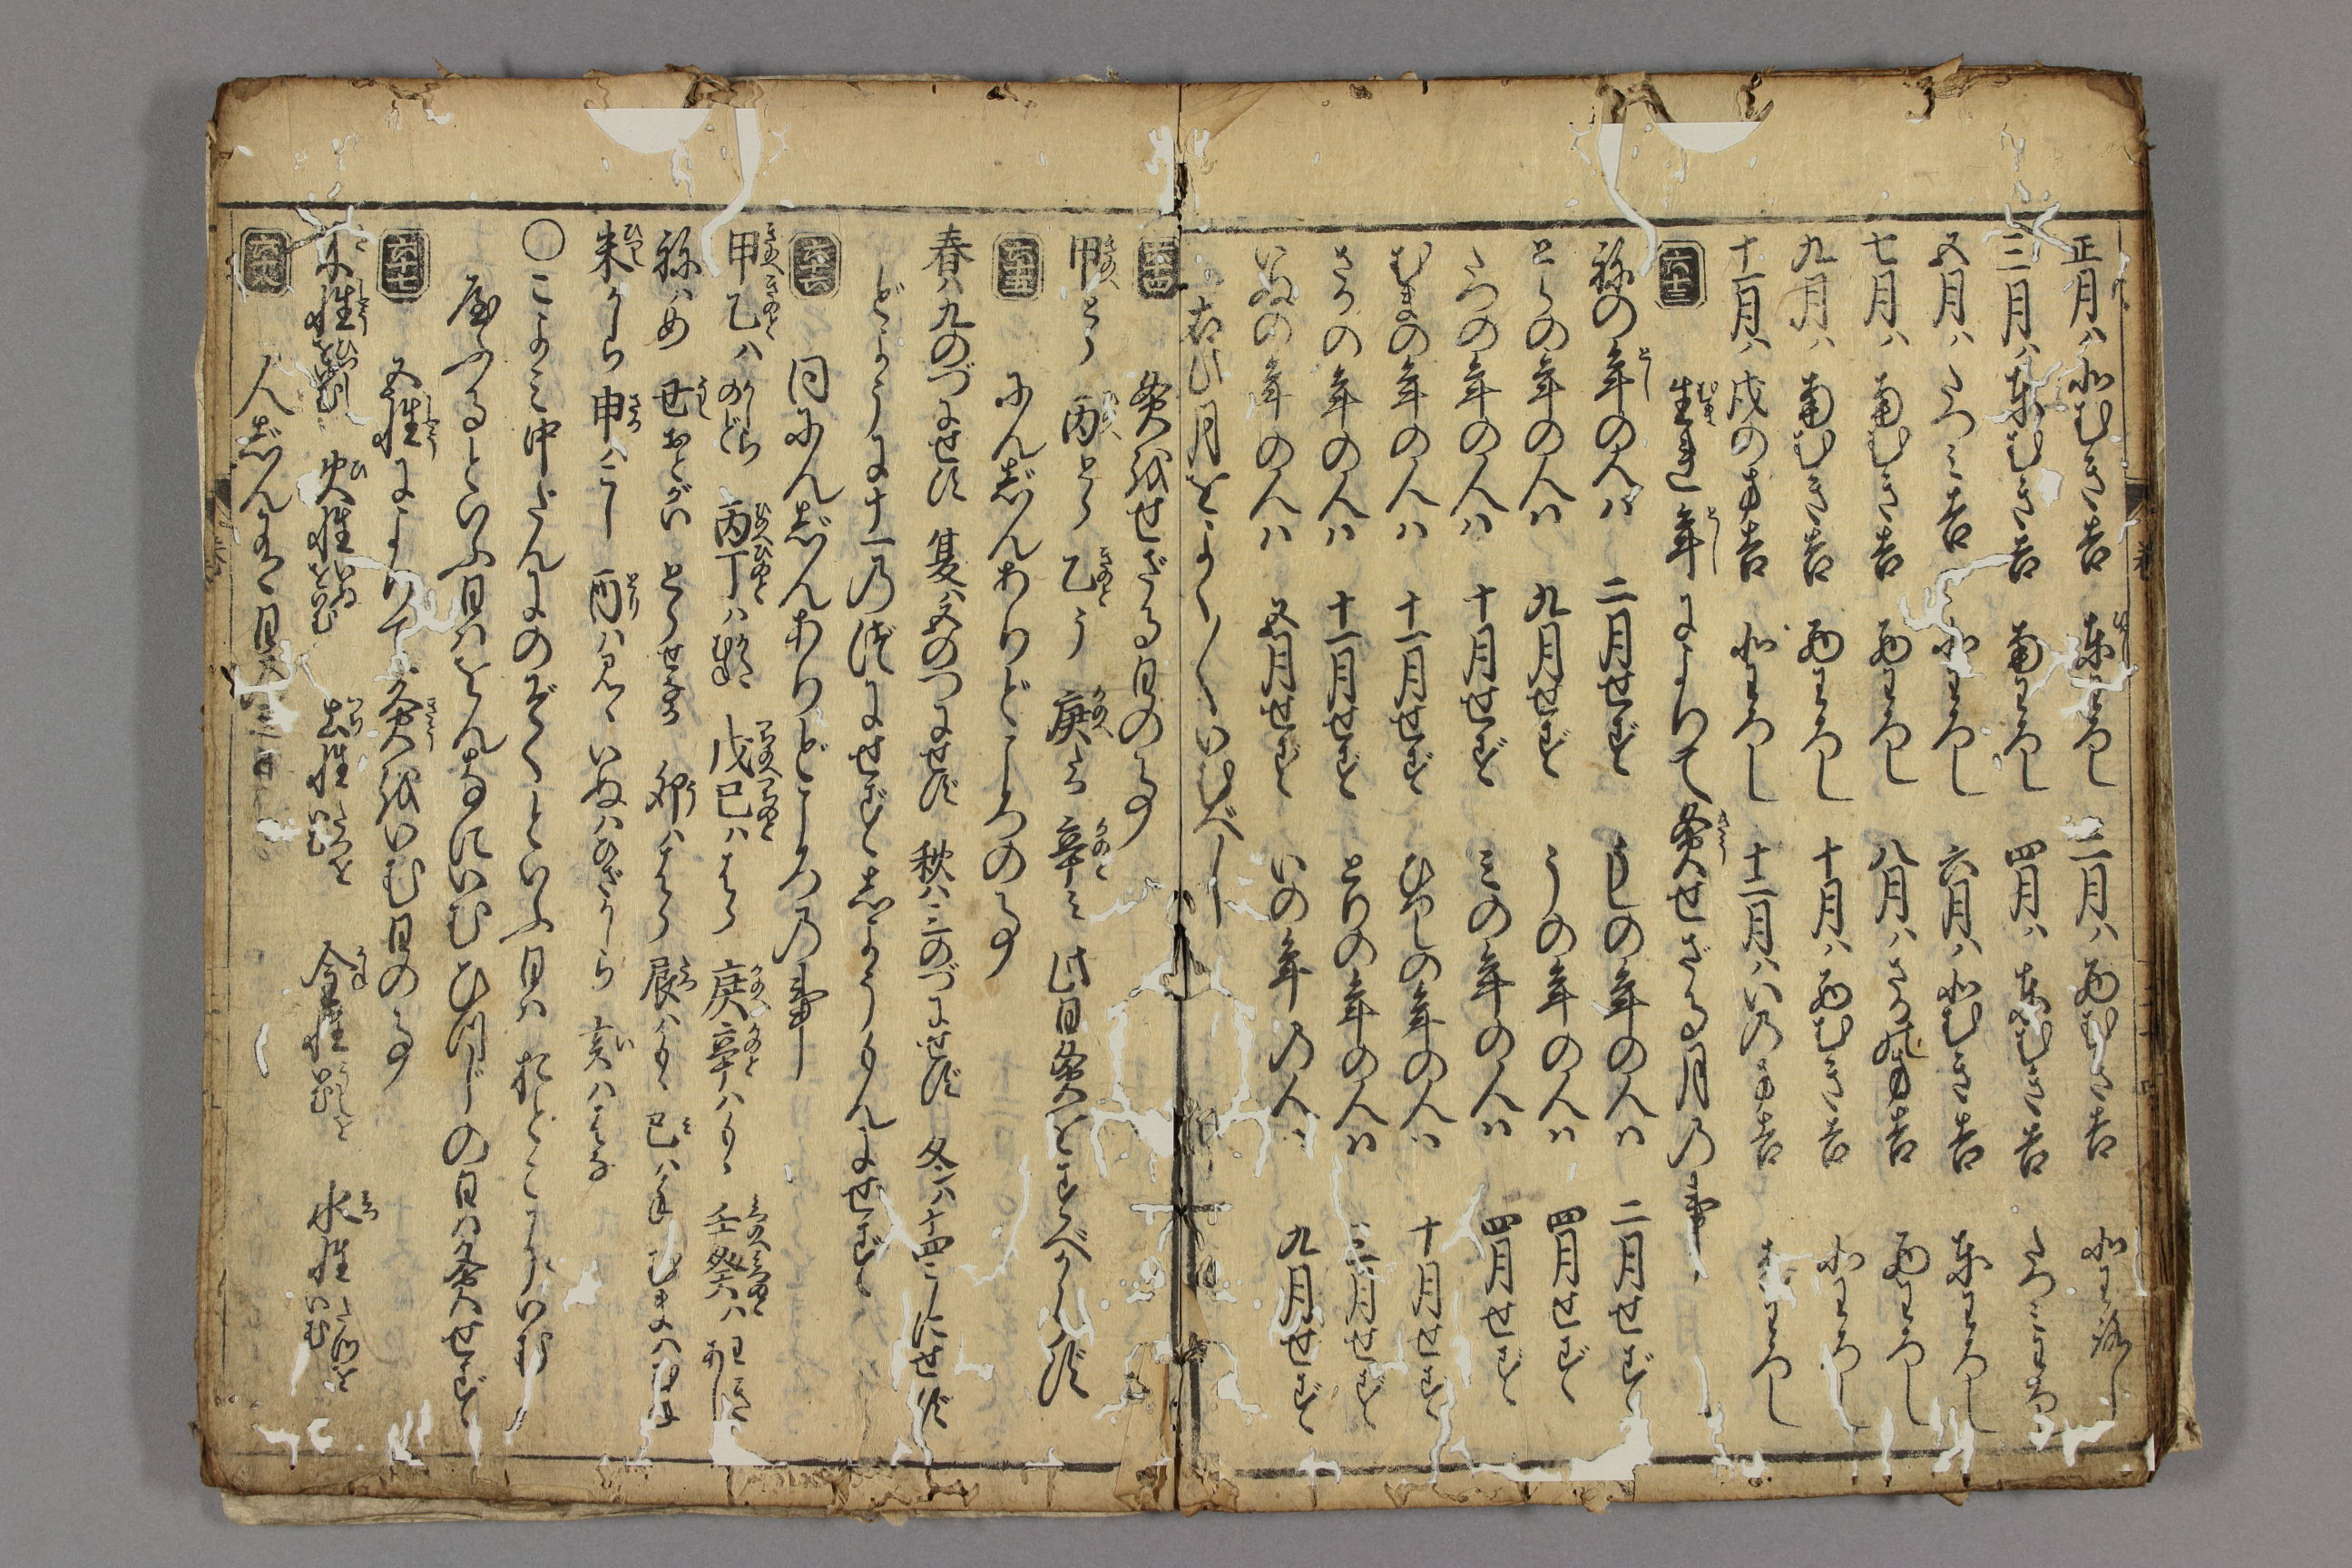 正月ハ北むき吉 東わろし 二月ハ西むき吉 北わろし
三月ハ東むき吉 南わろし 四月ハ東むき吉 たつミわろ
五月ハたつミ吉 北わろし 六月ハ北むき吉 東わろし
七月ハ南むき吉 西わろし 八月ハ 吉 西わろし
九月ハ南むき吉 西わろし 十月ハ西むき吉 北わろし
十一月ハ戌の方吉 北わろし 十二月ハいの方吉 わろし
六十三 生れ年によりて灸せざる月の事
祢の年の人ハ 二月せず うしの年の人ハ 二月せず
とらの年の人ハ 九月せず うの年の人ハ 四月せず
たつの年の人ハ 十月せず ミの年の人ハ 四月せず
むまの年の人ハ 十一月せず ひつしの年の人ハ 十月せず
さるの年の人ハ 十一月せず とりの年の人ハ 二月せず
いぬの年の人ハ 五月せず いの年の人ハ 九月せず
右此月をよく〳〵いむべし
六十四 灸治せざる日の事
甲とら 丙とら 乙う 庚たつ 辛ミ 此日灸をすべからず
六十五 にんじんありどころの事
春ハ九のづにせず 夏ハ五のづにせず 秋ハ三のづにせず 冬ハ十四こしにせず
どようは十一乃づにせず しようもんにせず
六十六 同にんじんありどころ乃事
甲乙ハかしら のど 丙丁ハかた むね 戊己ハはら 庚辛ハもゝ 壬癸ハ あし
祢ハめ 丑おとがい とらせなか 卯ハはら 辰ハもゝ 巳ハ手 むまハむね
未かしら 申ハこし 酉ハ いぬハひざかしら 亥ハはな
〇こよミ中だんにのぞくといふ日ハ おとこにいむ
屋ぶるといふ日ハをんなにいむ ひつじの日ハ灸せず
六十七 五性によりて灸治いむ日の事
木性ひつじをいむ 火性いぬをいむ 土性たつをいむ 金性うしをいむ 水性たつをいむ
人じん